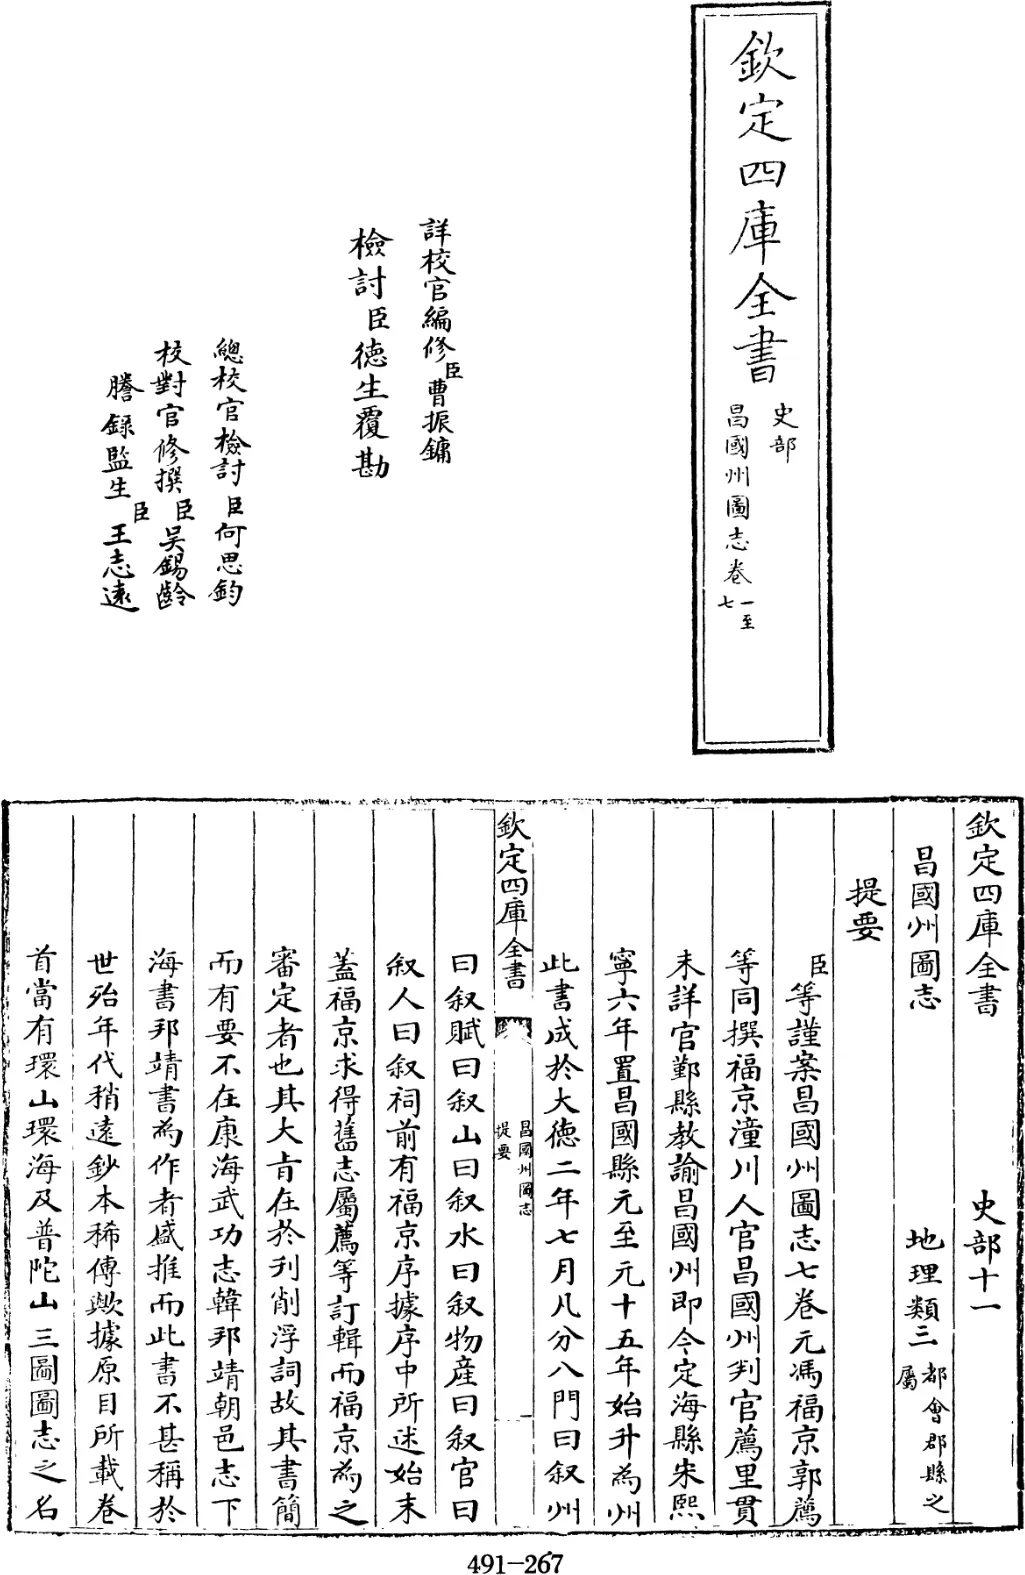 欽定四庫全書
史部
昌國州圖志卷一至七
詳校官編修臣曹振鏞
檢討臣德生覆勘
總校官檢討臣何思鈞
校對官修撰臣吳錫齡
謄錄監生臣王志遠
欽定四庫全書 史部十一
昌國州圖志 地理類三都會郡縣之屬
提要
臣等謹案昌國州圖志七卷元馮福京郭薦
等同撰福京潼川人官昌國州判官薦里貫
未詳官鄞縣教諭昌國州即今定海縣宋熙
寧六年置昌國縣元至元十五年始升為州
此書成於大德二年七月凡分八門曰叙州
欽定四庫全書 昌國州圖志 提要
曰叙賦曰叙山曰叙水曰叙物產曰叙官曰
叙人曰叙祠前有福京序據序中所述始末
蓋福京求得舊志屬薦等訂輯而福京為之
審定者也其大㫖在於刋削浮詞故其書簡
而有要不在康海武功志韓邦靖朝邑志下
海書邦靖書為作者盛推而此書不甚稱於
世殆年代稍遠鈔本稀傳歟據原目所載卷
首當有環山環海及普陀山三圖圖志之名
491-267